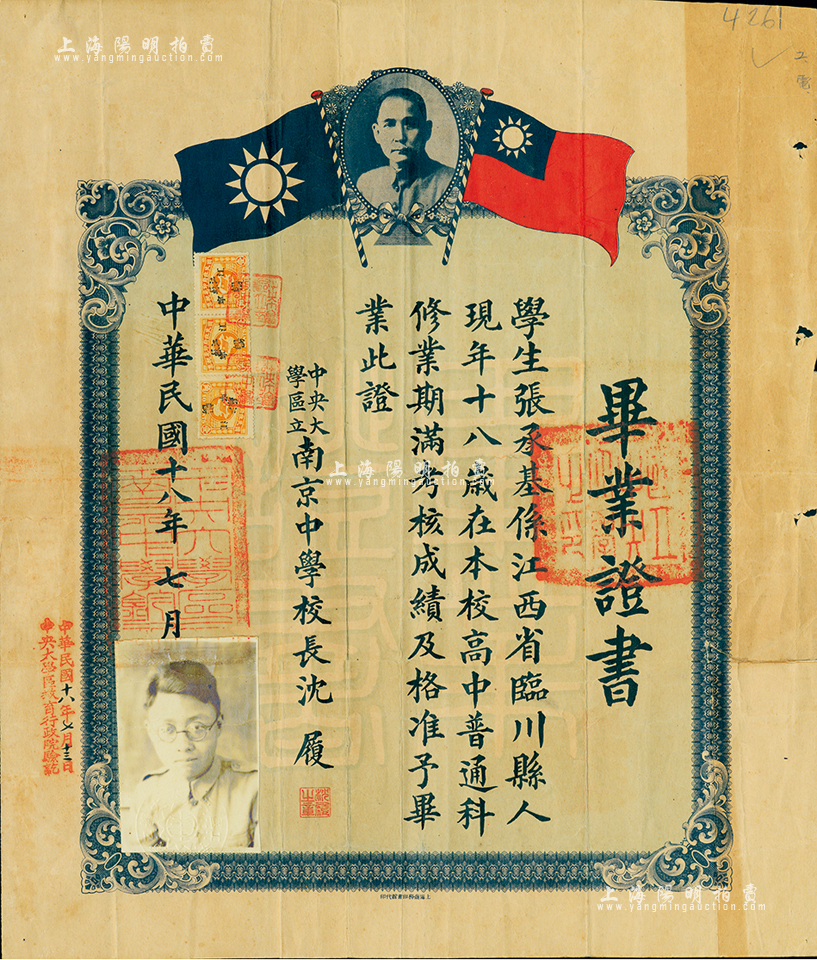 上海陽明拍賣
www.yangmingauction.com
4261
畢業證書
學生張承基係江西省臨川縣人
現年十八歲在本校高中普通科
修業期滿考核成績及格准予畢
業此證
中央大
學區立
南京中學校長沈履
中華民國十八年七月
中華民國十八年七月十三日
中央大學區教育行政院驗訖
上海陽明拍賣
www.yangmingauction.com
上海陽明拍賣
www.yangmingauction.com